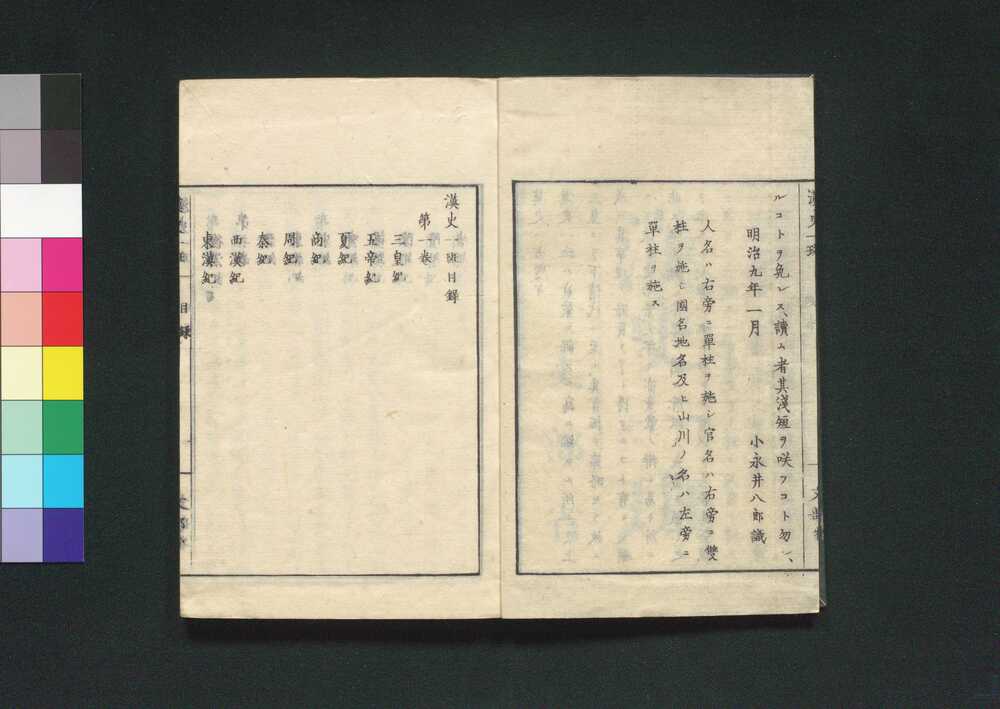 ルコトヲ免レス、讀ム者其淺短ヲ咲フコト勿レ、
明治九年一月　小永井八郎識
人名ハ右旁ニ單柱ヲ施シ官名ハ右旁ニ雙
柱ヲ施シ國名地名及ヒ山川ノ名ハ左旁ニ
單柱ヲ施ス
漢史一班目録
第一卷
三皇紀
五帝紀
夏紀
商紀
周紀
秦紀
西漢紀
東漢紀
目録